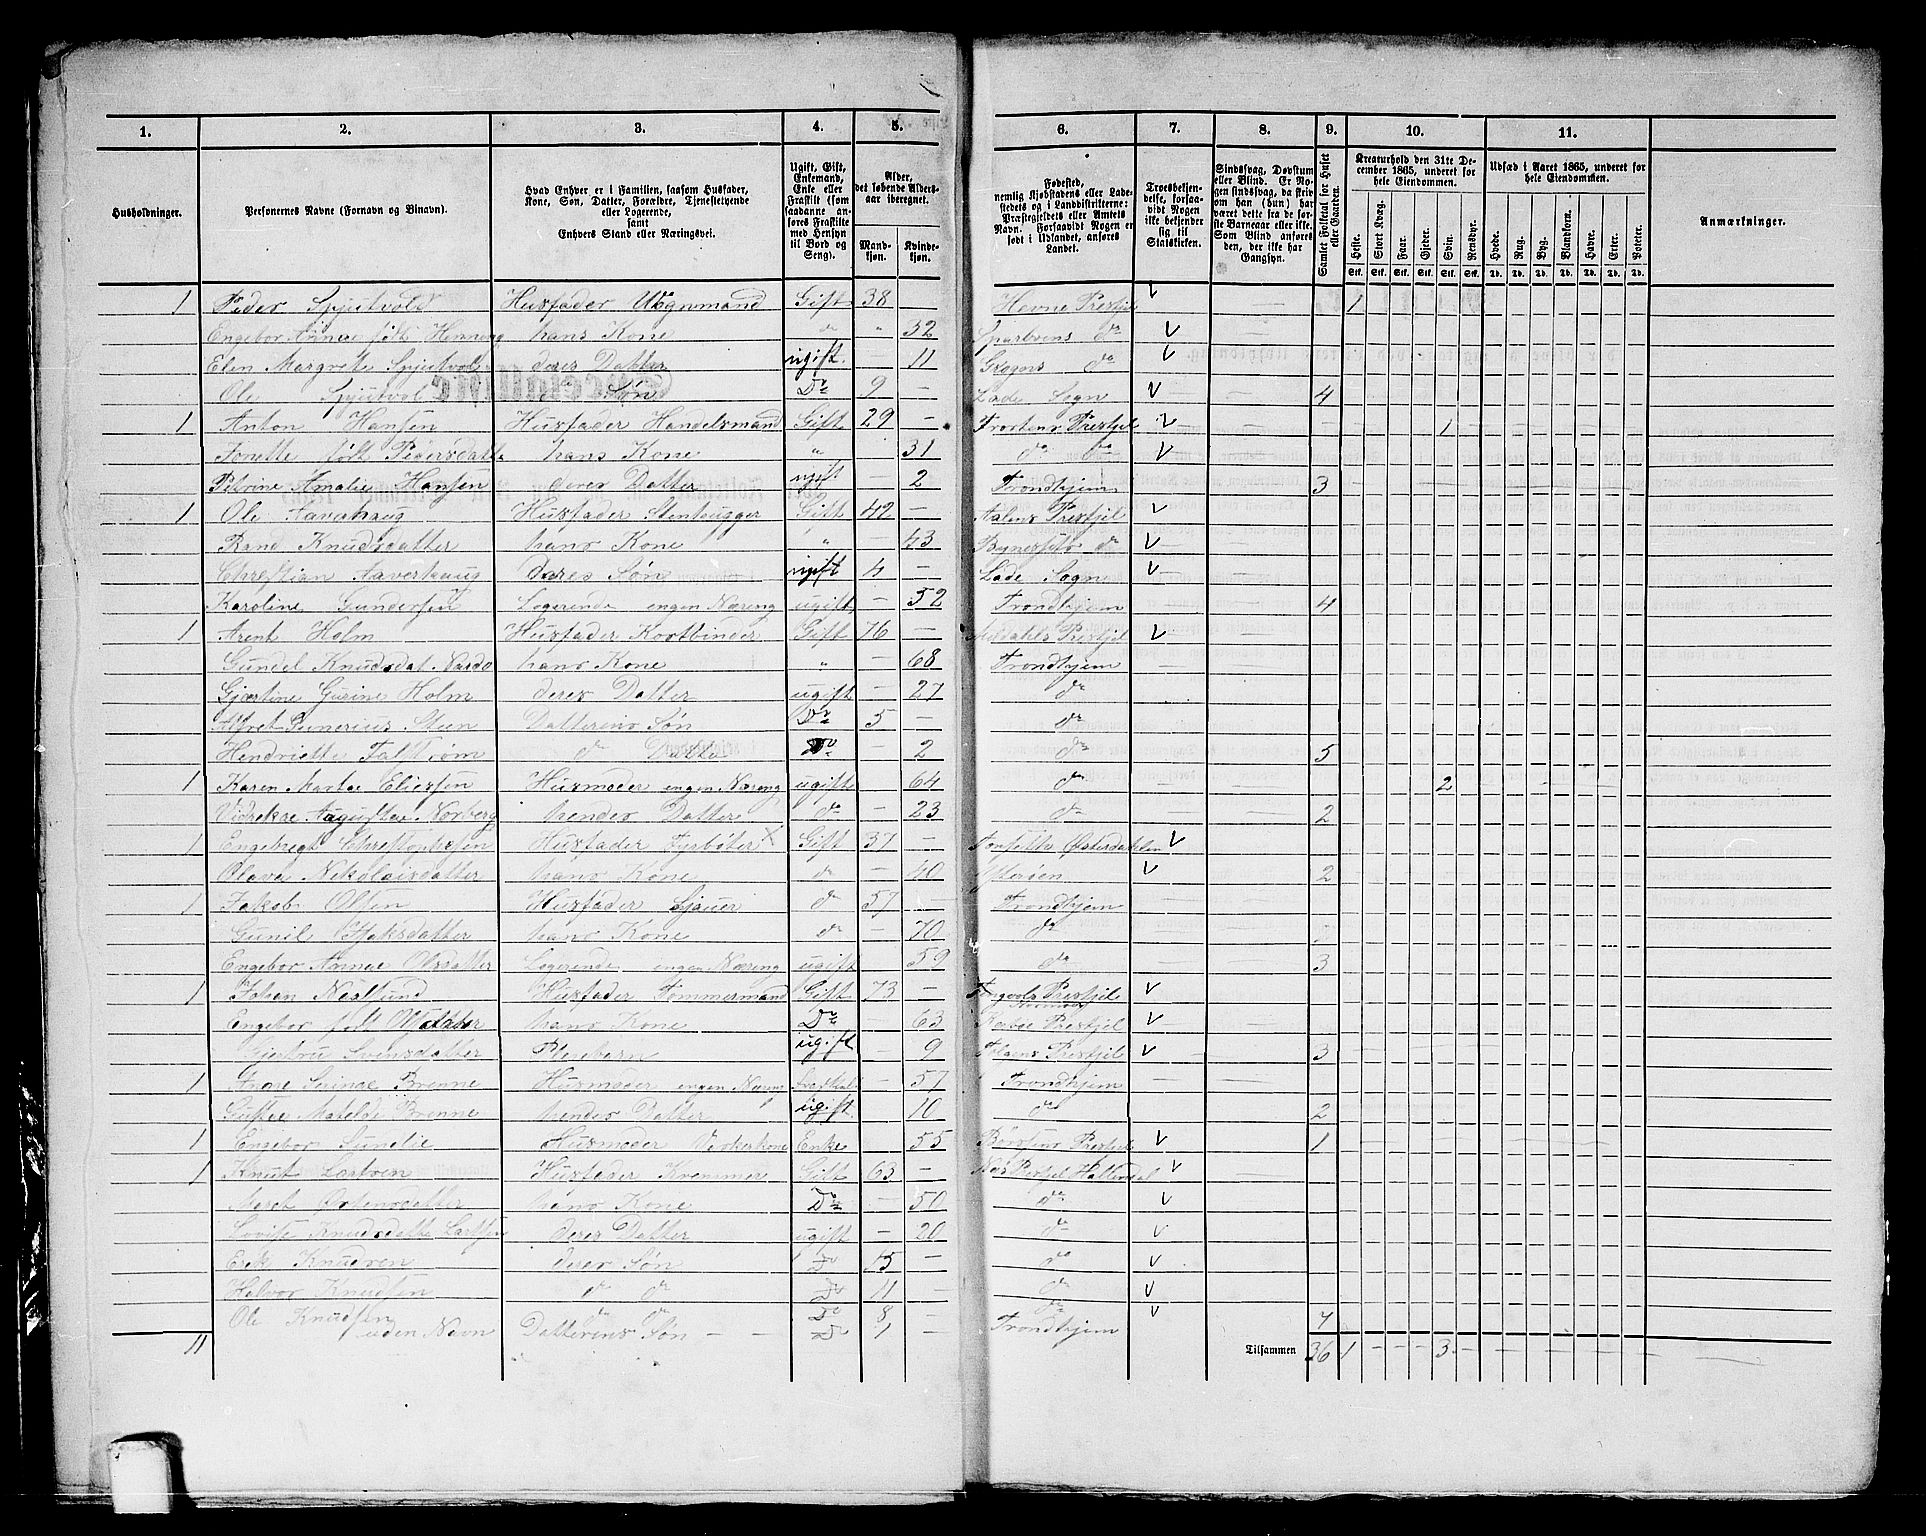 1. 2. 3. 4. 5. 6. 7. 8. 9. 10. 11.
Husholdninger.
Personernes Navne (Fornavn og Binavn).
Hvad Enhver er i Familien, saasom Husfader, Kone, Søn, Datter, Forældre, Tjenestetyende eller Logerende, samt Enhvers Stand eller Næringsvei.
Ugift, Gift, Enkemand, Enke eller Fraskilt (som saadanne anføres Fraskilte med Hensyn til Bord og Seng).
Alder, det løbende Aldersaar iberegnet.
Mandkjøn. Kvindekjøn.
Fødested, nemlig Kjøbstadens eller Ladestedets og i Landdistrikterne: Præstegjeldets eller Amtets Navn. Forsaavidt Nogen er født i Udlandet, anføres Landet.
Troesbekjendelse, forsaavidt Nogen ikke bekjender sig til Statskirken.
Sindssvag, Døvstum eller Blind. Er Nogen sindssvag, da skrives om han (hun) har været dette fra de første Barneaar eller ikke. Som Blind anføres den, der ikke har Gangsyn.
Samlet Folketal for Huset eller Gaarden.
Kreaturhold den 31te December 1865, underet for hele Eiendommen.
Heste. Stort Kvæg. Faar. Gjeder. Svin. Rensdyr.
Stk. Stk. Stk. Stk. Stk. Stk.
Udsæd i Aaret 1865, underet for hele Eiendommen.
Hvede. Rug. Byg. Blandkorn. Havre. Erter. Poteter.
Td. Td. Td. Td. Td. Td. Td.
Anmærkninger.
1 Peder Spjutvold Husfader Vognmand Gift 38 — Hevne Prestjel v 1
Engebor Annae født Henning hans Kone do " 32 Sparbyens do v
Elen Margrete Spjutvol deres Datter ugift — 11 do v
Ole Spjutvol do Søn Do 9 — Lade Sogn v 4
1 Anton Hansen Husfader Handelsmand Gift 29 — Frostens Prestjel v 1
Jonette født Pedersdatte hans Kone " 31 do do v
Petrine Amalie Hansen deres Datter ugift 2 Trondhjem 3
1 Ole Aavahaug Husfader Stenhugger Gift 42 — Aalens Prestjel v
Rand Knudsdatter hans Kone " — 43 Bynessets do v
Christian Aaverhaug deres Søn ugift 4 — Lade Sogn v
Karoline Gundersen Logerende engen Næreng ugift — 52 Trondhjem 4
1 Arent Holm Husfader Kostbinder Gift 76 — Prestjel v
Gundel Knudsdat Nardo hans Kone " — 68 Trondhjem
Gjertine Gurine Holm deres Datter ugift — 27 do
Alfret Gunerius Steen Datterens Søn Do 5 — do
Hendriette Falstrøm do Datte Do — 2 do 5
1 Karen Martae Eliesen Husmoder engen Næreng ugift — 64 do 2
Augustae Norberg hendes Datter do — 23 do 2
1 Engebregt Chrestophersen Husfader Fyrbøter x Gift 37 — Østerdahlen v
Olava Nekolaisdatter hans Kone do — 40 Ytterøen v 2
1 Jakob Olsen Husfader Sjauer do 57 — Trondhjem
Gunil hans Kone do — 70 do
Engebor Annae Olsdatter Logerende engen Næreng ugift — 59 do 3
1 Johan Neslund Husfader Tømmermand Gift 73 — Tingvols Prestjel v
Engebor født Olsdatter hans Kone Do — 63 Prestjel v
Svensdatter Pleiebarn ugift — 9 Prestjel v 3
1 Anne Brenne Husmoder engen Næren — 57 Trondhjem
Matelde Brenne hendes Datter ugift 10 do 2
1 Engebor Husmoder Enke — 55 Børsens Prestjel v 1
1 Knut Husfader Kremmer Gift 63 — Nes Prestjel Hallendal v
Marit Østensdatter hans Kone Do — 50 do v
Lovise Knudsdatte deres Datter ugift — 20 do v
Erek Knudsen deres Søn Do 15 — do v
Halvor Knudsen do do Do 11 — do v
Ole Knudsen do do Do 8 — do v 7
uden Navn Datterens Søn — — Do 1 — Trondhjem
11 Tilsammen 36 1 — — — 3 —